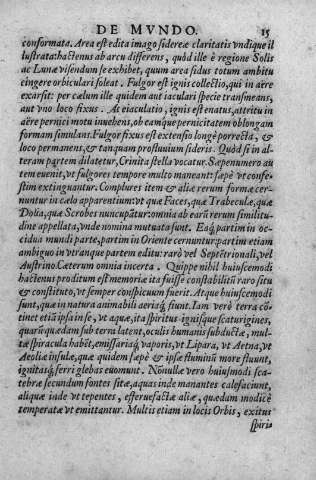 DE MVNDO. 15
conformata. Area est edita imago sidereæ claritatis vndique il
lustrata: hactenus ab arcu differens, quòd ille è regione Solis
ac Lunæ visendum se exhibet, quum area sidus totum ambitu
cingere orbiculari soleat. Fulgor est ignis collectio, qui in aëre
exarsit: per cælum ille quidem aut iaculari specie transmeans,
aut vno loco fixus. At eiaculatio, ignis est enatus, attritu in
aëre pernici motu inuehens, ob eamque pernicitatem oblongam
formam simulans. Fulgor fixus est extensio longè porrecta, &
loco permanens, & tanquam profluuium sideris. Quòd si in al-
teram partem dilatetur, Crinita stella vocatur. Sæpenumero au
tem euenit, vt fulgores tempore multo maneant: sæpè vt confe-
stim extinguantur. Complures item & aliæ rerum formæ cer-
nuntur in cælo apparentium: vt quæ Faces, quæ Trabeculæ, quæ
Dolia, quæ Scrobes nuncupãtur: omnia ab earũ rerum similitu-
dine appellata, vnde nomina mutuata sunt. Eaq; partim in oc-
cidua mundi parte, partim in Oriente cernuntur: partim etiam
ambiguo in vtranque partem editu: rarò vel Septẽtrionali, vel
Austrino. Cæterum omnia incerta. Quippe nihil huiuscemodi
hactenus proditum est memoriæ ita fuisse constabilitũ raro situ
& constituto, vt semper conspicuum fuerit. Atque huiuscemodi
sunt, quæ in natura animabili aeriâq; fiunt. Iam verò terra cõ-
tinet etiã ipsa in se, vt aquæ, ita spiritus ignisque scaturigines,
quarũ quædam sub terra latent, oculis humanis subductæ, mul-
tæ spiracula habẽt, emissariáq; vaporis, vt Lipara, vt Aetna, vt
Aeoliæ insulæ, quæ quidem sæpè & ipsæ fluminũ more fluunt,
ignitásq; ferri glebas euomunt. Nõnullæ vero huiusmodi sca-
tebræ secundum fontes sitæ, aquas inde manantes calefaciunt,
aliquæ inde vt tepentes, efferuefactæ aliæ, quædam modicè
temperatæ vt emittantur. Multis etiam in locis Orbis, exitus
spiri-